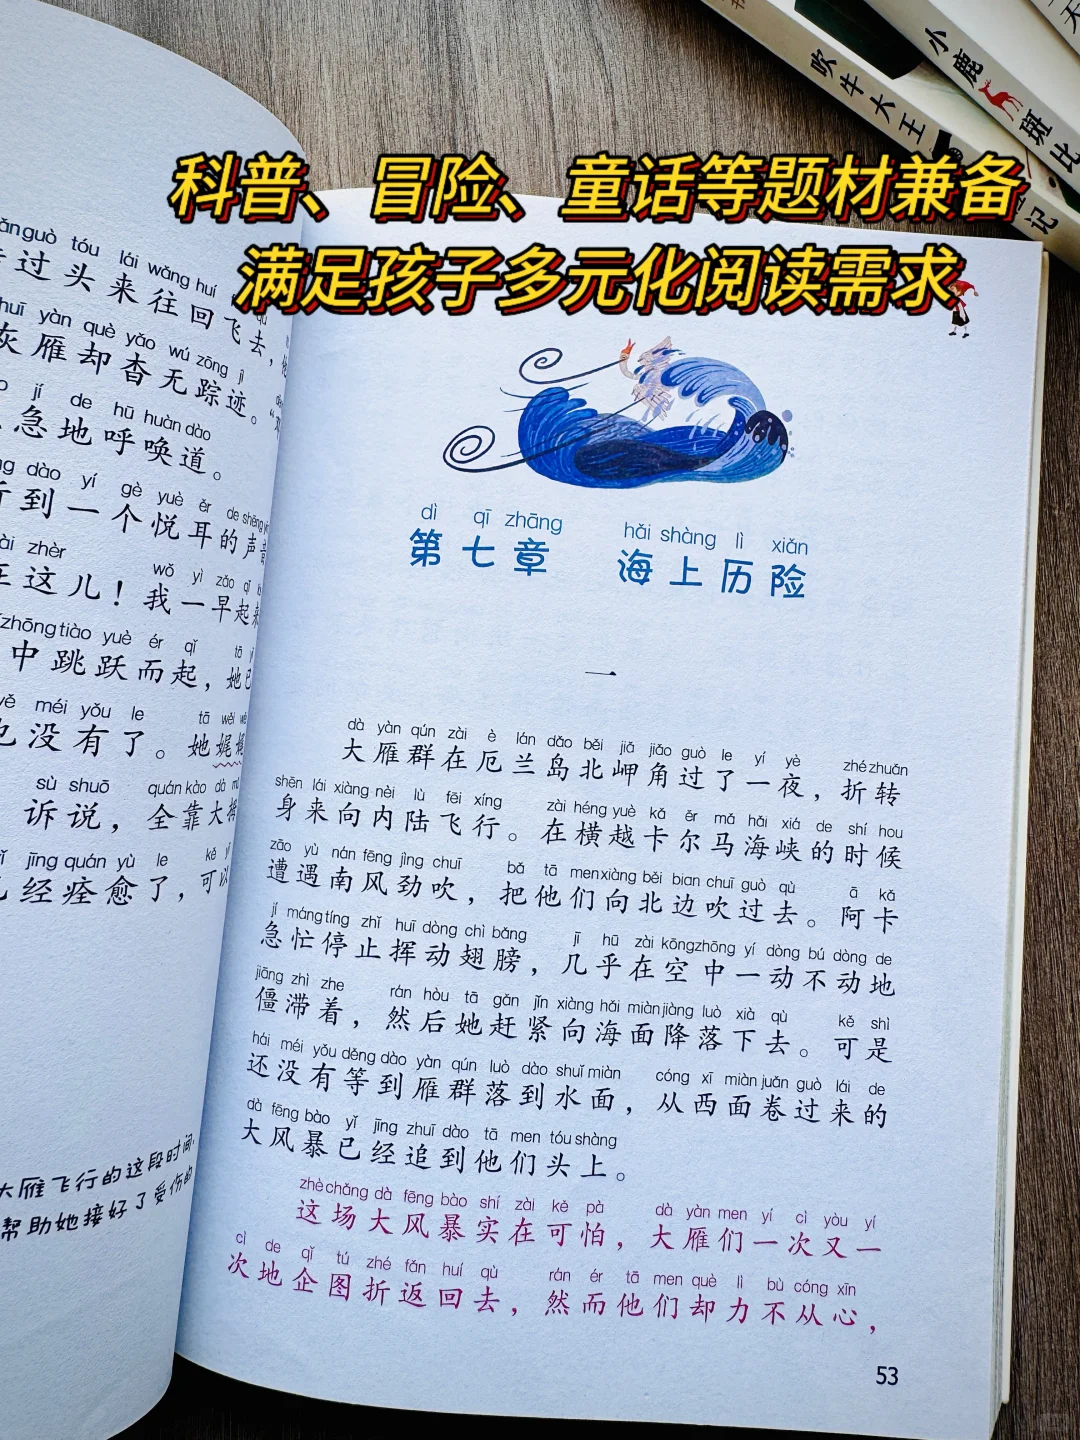 科普、冒险、童话等题材兼备
满足孩子多元化阅读需求
吹牛大王
小鹿斑比
guò tóu lái wǎng huí
过头来往回飞去，
yàn què yǎo wú zōng jì
灰雁却杳无踪迹。“
jí de hū huàn dào
急地呼唤道。
dào yí gè yuè ěr de shēng
听到一个悦耳的声
zài zhèr wǒ yì zǎo qǐ
在这儿！我一早起来
zhōng tiào yuè ér qǐ tā
中跳跃而起，她已
yě méi yǒu le tā wěi
也没有了。她娓娓
sù shuō quán kào dà
诉说，全靠大拇
jīng quán yù le kě yǐ
已经痊愈了，可以
大雁飞行的这段时间，
帮助她接好了受伤的
dì qī zhāng hǎi shàng lì xiǎn
第七章 海上历险
一
dà yàn qún zài è lán dǎo běi jiǎ jiǎo guò le yí yè zhé zhuǎn
大雁群在厄兰岛北岬角过了一夜，折转
shēn lái xiàng nèi lù fēi xíng zài héng yuè kǎ ěr mǎ hǎi xiá de shí hou
身来向内陆飞行。在横越卡尔马海峡的时候
zāo yù nán fēng jìng chuī bǎ tā men xiàng běi bian chuī guò qù ā kǎ
遭遇南风劲吹，把他们向北边吹过去。阿卡
jí máng tíng zhǐ huī dòng chì bǎng jī hū zài kōng zhōng yí dòng bú dòng de
急忙停止挥动翅膀，几乎在空中一动不动地
jiāng zhì zhe rán hòu tā gǎn jǐn xiàng hǎi miàn jiàng luò xià qù kě shì
僵滞着，然后她赶紧向海面降落下去。可是
hái méi yǒu děng dào yàn qún luò dào shuǐ miàn cóng xī miàn juǎn guò lái de
还没有等到雁群落到水面，从西面卷过来的
dà fēng bào yǐ jīng zhuī dào tā men tóu shàng
大风暴已经追到他们头上。
zhè chǎng dà fēng bào shí zài kě pà dà yàn men yí cì yòu yí
这场大风暴实在可怕，大雁们一次又一
cì de qǐ tú zhé fǎn huí qù rán ér tā men què lì bù cóng xīn
次地企图折返回去，然而他们却力不从心，
53